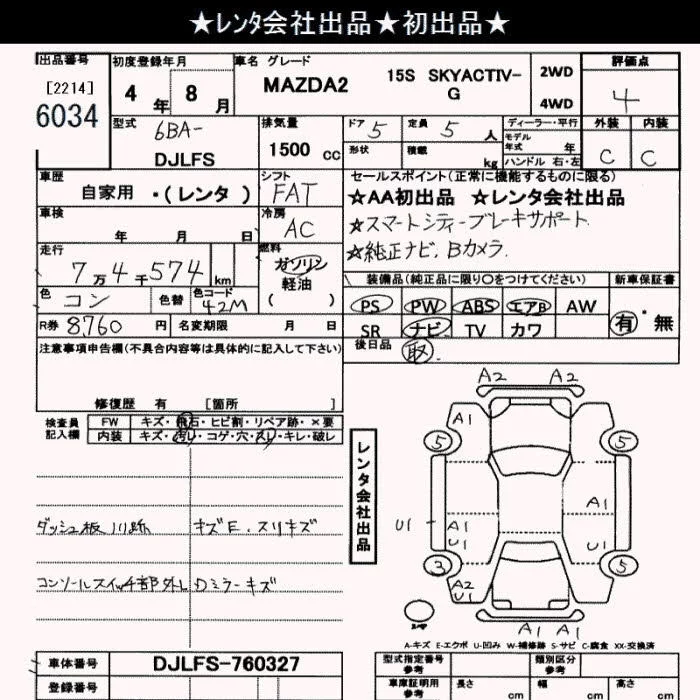 ★レンタ会社出品★初出品★
出品番号 初度登録年月 車名 グレード 評価点
[2214] 4年 8月 MAZDA2 15S SKYACTIV-G 2WD 4WD 4
6034
型式 6BA- 排気量 ドア 5 定員 5 人 ディーラー・平行 外装 内装
DJLFS 1500 cc 形状 積載 kg モデル年式 年 C C
ハンドル 右・左
車歴 シフト セールスポイント(正常に機能するものに限る)
自家用 ・(レンタ) FAT ★AA初出品 ★レンタ会社出品
車検 冷房 ☆スマートシティーブレーキサポート
年 月 日 AC ☆純正ナビ、Bカメラ.
走行 燃料
7万4千574 km ガソリン 軽油 ( ) 装備品(純正品に限り○をつけてください) 新車保証書
色 コン 色替 色コード 42M PS PW ABS エアB AW 有・無
R券 8,760 円 名変期限 月 日 SR ナビ TV カワ
注意事項申告欄(不具合内容等は具体的に記入して下さい) 後日品 取
修復歴 有 [箇所 ]
検査員記入欄 FW キズ・飛石・ヒビ割・リペア跡・×要
内装 キズ・汚レ・コゲ・穴・スレ・キレ・破レ
A2 A2
A1
5 5
レンタ会社出品
ダッシュ板 キズE、スリキズ
A1
U1 A1
U1 U1
3 5
コンソールスイッチ部外レ Dミラーキズ
A2
U1
A1 A1
A-キズ E-エクボ U-凹み W-補修跡 S-サビ C-腐食 XX-交換済
車体番号 DJLFS-760327 型式指定番号 参考 類別区分 参考
登録番号 車庫証明用 参考 長さ cm 幅 cm 高さ cm